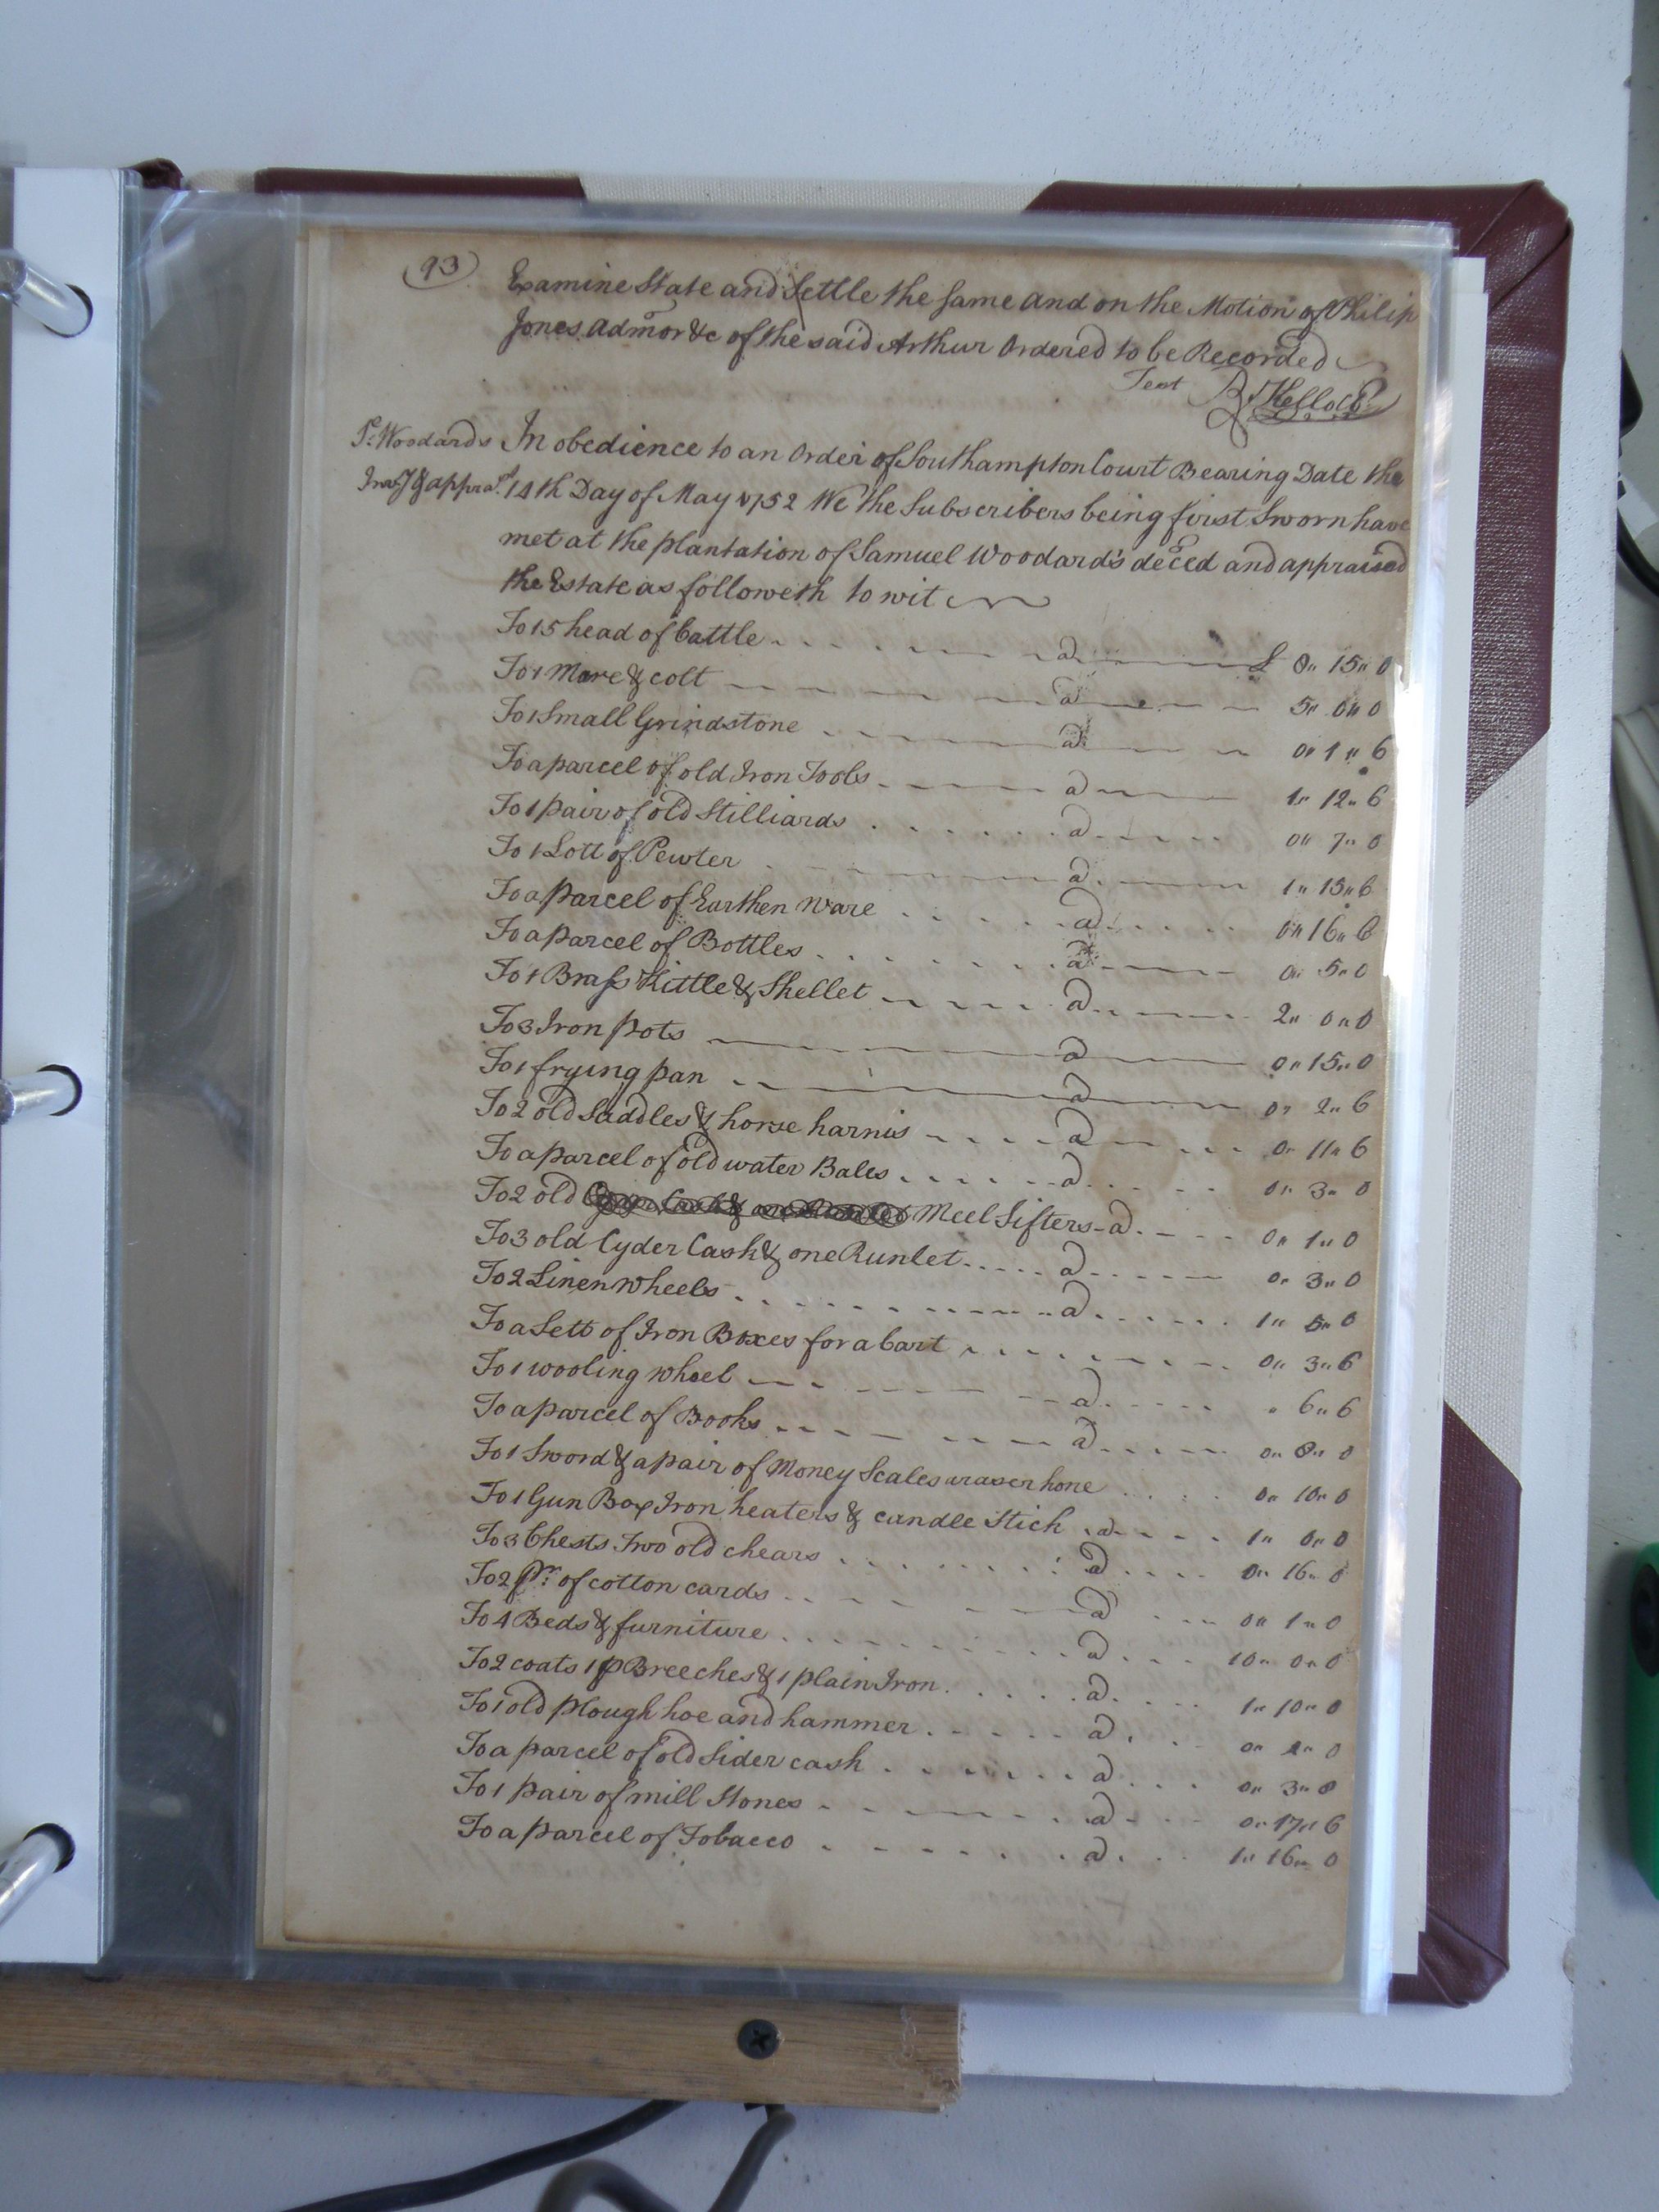 93
Examine State and Settle the same and on the Motion of Philip
Jones Admor &c of the said Arthur Ordered to be Recorded
Test R. Kello Cl
S. Woodards In obedience to an Order of Southampton Court Bearing Date the
Invy & apprat. 14th Day of May 1752 We the Subscribers being first Sworn have
met at the plantation of Samuel Woodard's deced and appraised
the Estate as followeth to wit
To 15 head of Cattle a £ 8 " 15 " 0
To 1 Mare & colt a 5 " 0 " 0
To 1 Small Grindstone a 0 " 1 " 6
To a parcel of old Iron Tools a 1 " 12 " 6
To 1 pair of old Stilliards a 0 " 7 " 0
To 1 Lott of Pewter a 1 " 15 " 6
To a Parcel of Earthen Ware a 0 " 16 " 6
To a Parcel of Bottles a 0 " 5 " 0
To 1 Brass Kittle & Skellet a 2 " 0 " 0
To 3 Iron Pots a 0 " 15 " 0
To 1 frying pan a 0 " 2 " 6
To 2 old Saddles & horse harnis a 0 " 11 " 6
To a parcel of old water Bales a 0 " 3 " 0
To 2 old Meel Sifters a 0 " 1 " 0
To 3 old Cyder Cask & one Runlet a 0 " 3 " 0
To 2 Linen Wheels a 1 " 5 " 0
To a Sett of Iron Boxes for a Cart 0 " 3 " 6
To 1 wooling wheel a " 6 " 6
To a parcel of Books a 0 " 8 " 0
To 1 Sword & a pair of Money Scales a raser hone 0 " 10 " 0
To 1 Gun Box Iron heaters & candle Stick a 1 " 0 " 0
To 3 Chests Two old chears a 0 " 16 " 0
To 2 pr. of cotton cards a 0 " 1 " 0
To 4 Beds & furniture a 10 " 0 " 0
To 2 coats 1 p Breeches & 1 plain Iron a 1 " 10 " 0
To 1 old Plough hoe and hammer a 0 " 2 " 0
To a parcel of old Sider cask a 0 " 3 " 0
To 1 pair of mill Stones a 0 " 17 " 6
To a parcel of Tobacco a 1 " 16 " 0